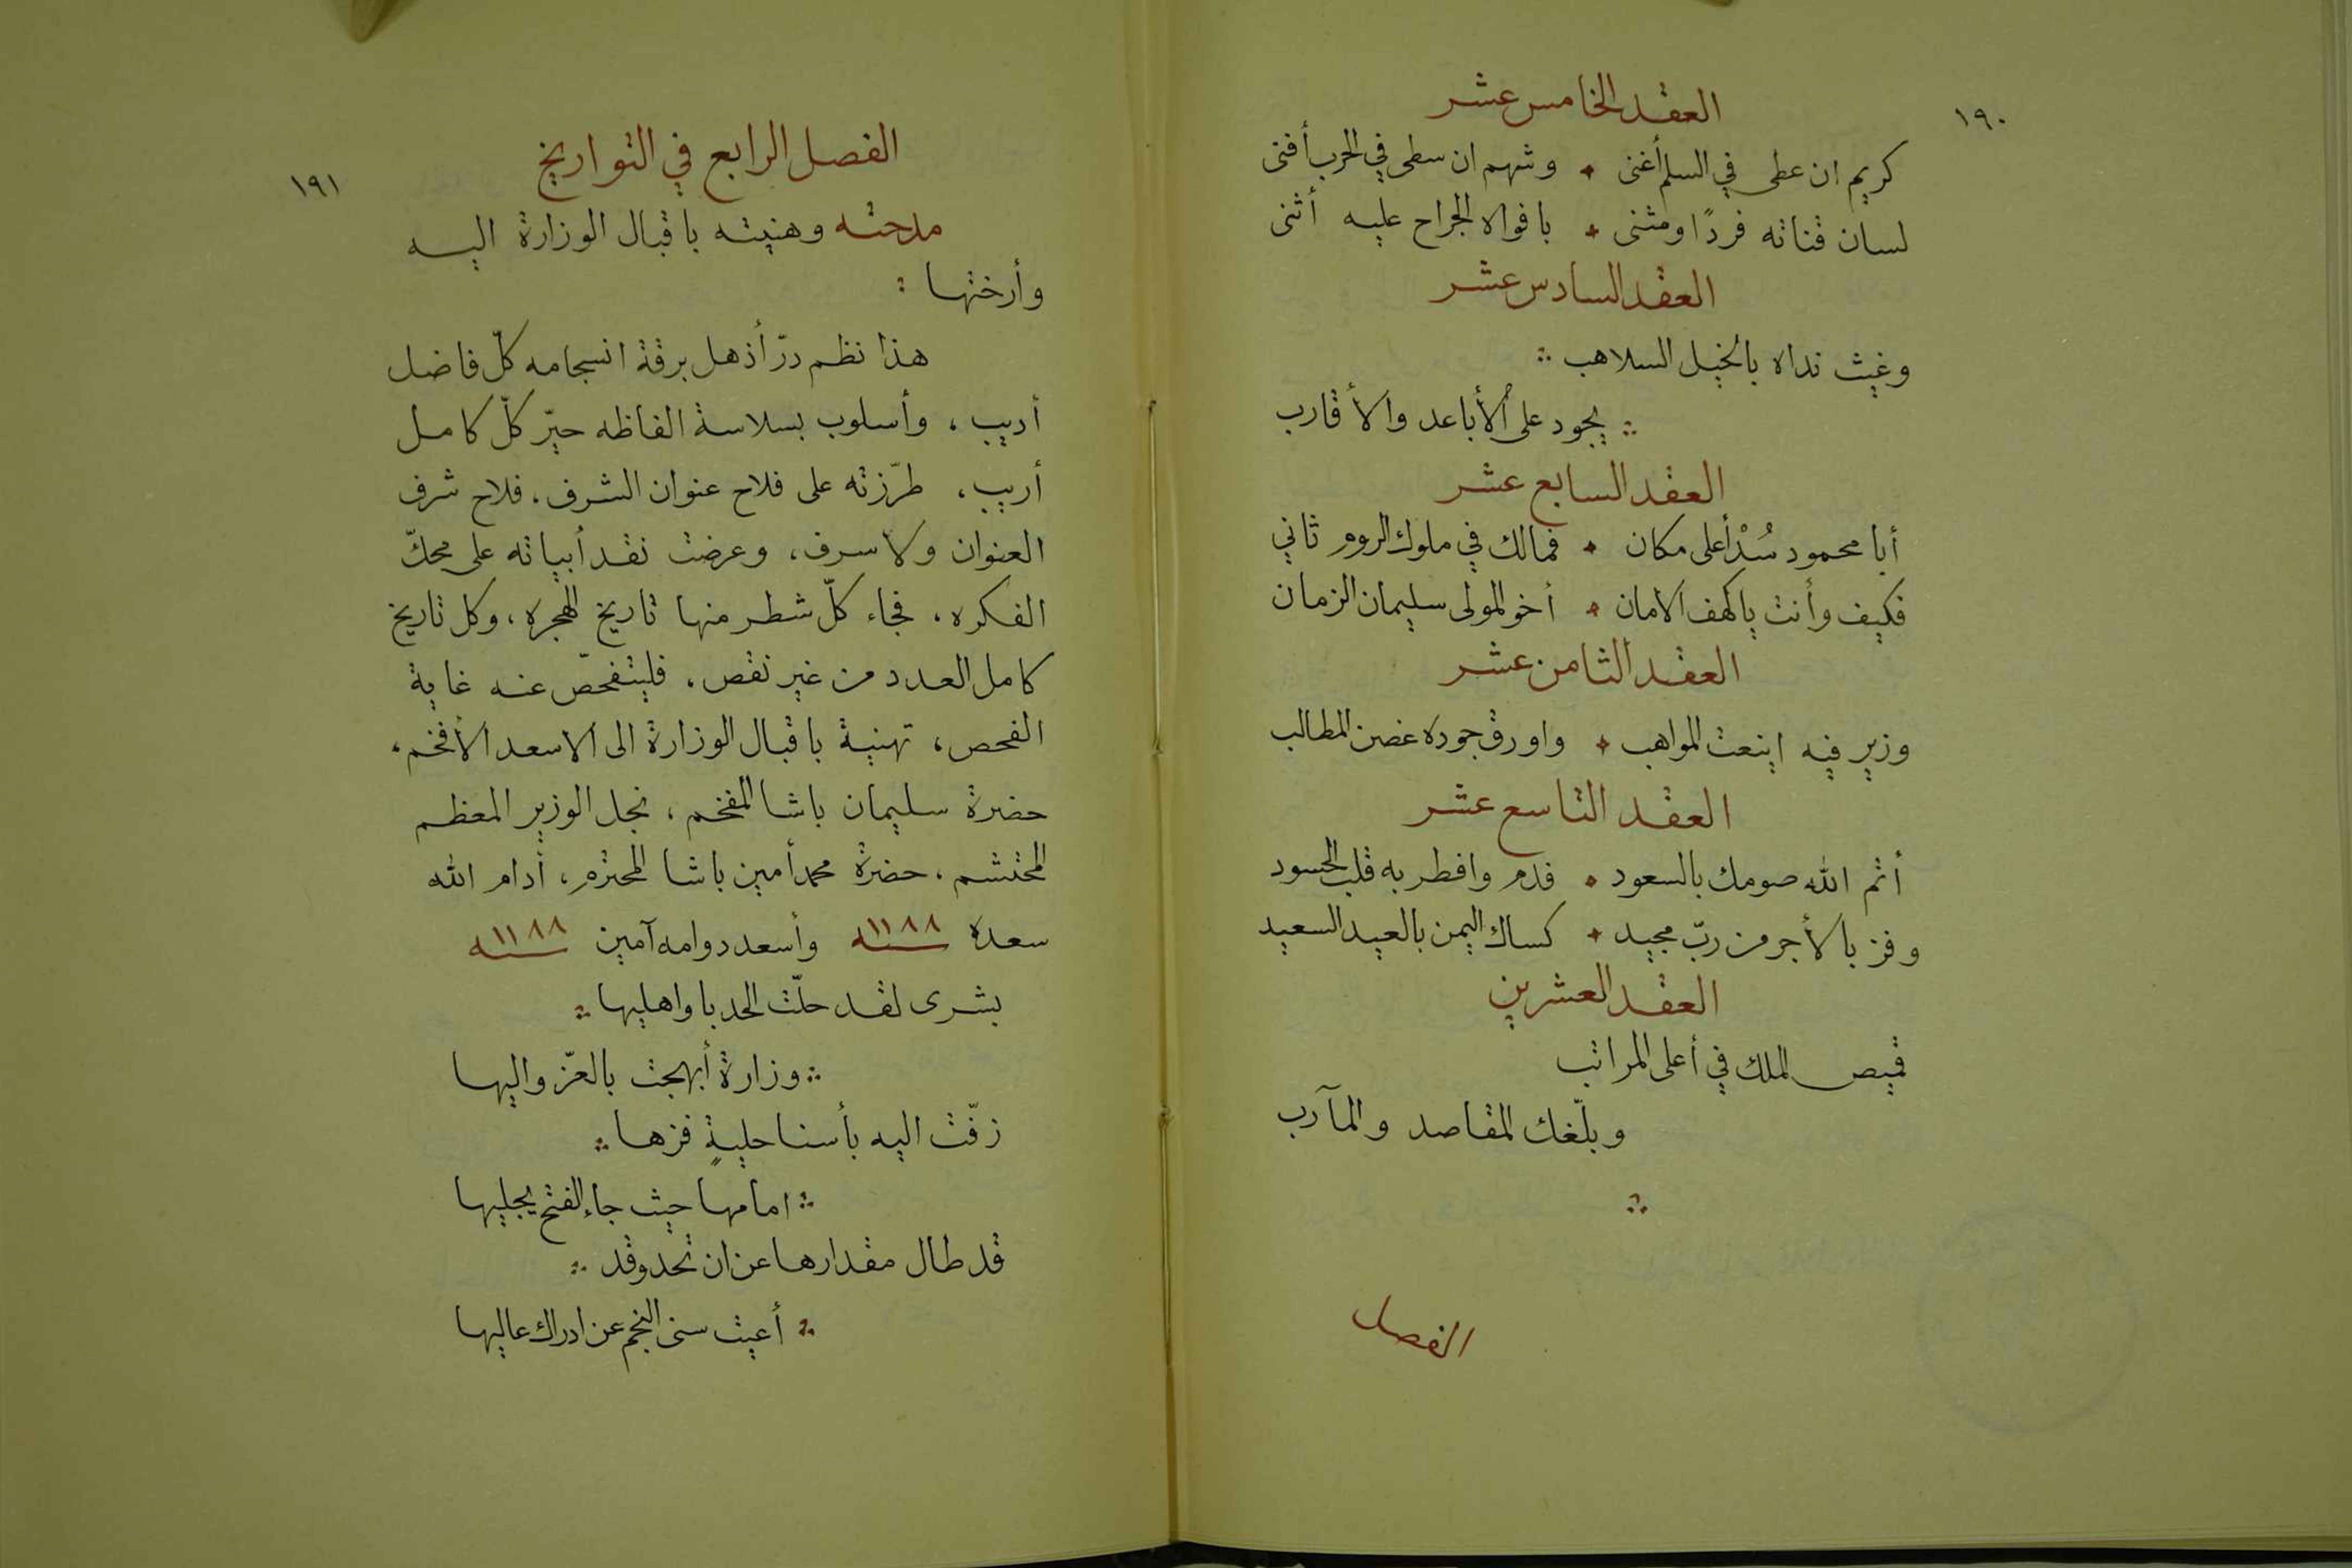 ١٩٠
العقد الخامس عشر
كريم ان عطى في السلم أغنى ٭ وشهم ان سطى في الحرب أفنى
لسان قناته فردًا ومثنى ٭ بافواه الجراح عليه أثنى
العقد السادس عشر
وغيث نداه بالخيل السلاهب ؞
؞ يجود على الأباعد والأقارب
العقد السابع عشر
أبا محمود سُدْ أعلى مكان ٭ فمالك في ملوك الروم ثاني
فكيف وأنت ياكهف الامان ٭ أخو المولى سليمان الزمان
العقد الثامن عشر
وزير فيه اينعت المواهب ٭ واورق جوده غصن المطالب
العقد التاسع عشر
أتم الله صومك بالسعود ٭ فدم وافطر به قلب الحسود
وفز بالأجر من ربّ مجيد ٭ كساك اليمن بالعيد السعيد
العقد العشرين
قميص الملك في أعلى المراتب
وبلّغك المقاصد والمآرب
؞
الفصل
١٩١
الفصل الرابع في التواريخ
مدحته وهنيته باقبال الوزارة اليه
وأرختها :
هذا نظم درّ أذهل برقة انسجامه كلّ فاضل
أديب ، وأسلوب بسلاسة الفاظه حيّر كلّ كامل
أريب ، طرّزته على فلاح عنوان الشرف ، فلاح شرف
العنوان ولا سرف ، وعرضت نقد أبياته على محكّ
الفكره ، فجاء كلّ شطر منها تاريخ الهجره ، وكل تاريخ
كامل العدد من غير نقص ، فليتفحّص عنه غاية
الفحص ، تهنية باقبال الوزارة الى الاسعد الأفخم ،
حضرة سليمان باشا المفخم ، نجل الوزير المعظم
المحتشم ، حضرة محمد أمين باشا المحترم ، أدام الله
سعده سنه ١١٨٨ وأسعد دوامه آمين سنه ١١٨٨
بشرى لقد حلّت الحدبا واهليها ؞
؞ وزارة أبهجت بالعزّ واليها
زفّت اليه بأسنا حليةٍ فزها ؞
؞ امامها حيث جاء الفتح يجليها
قد طال مقدارها عن ان تحد وقد ؞
؞ أعيت سنى النجم عن ادراك عاليها